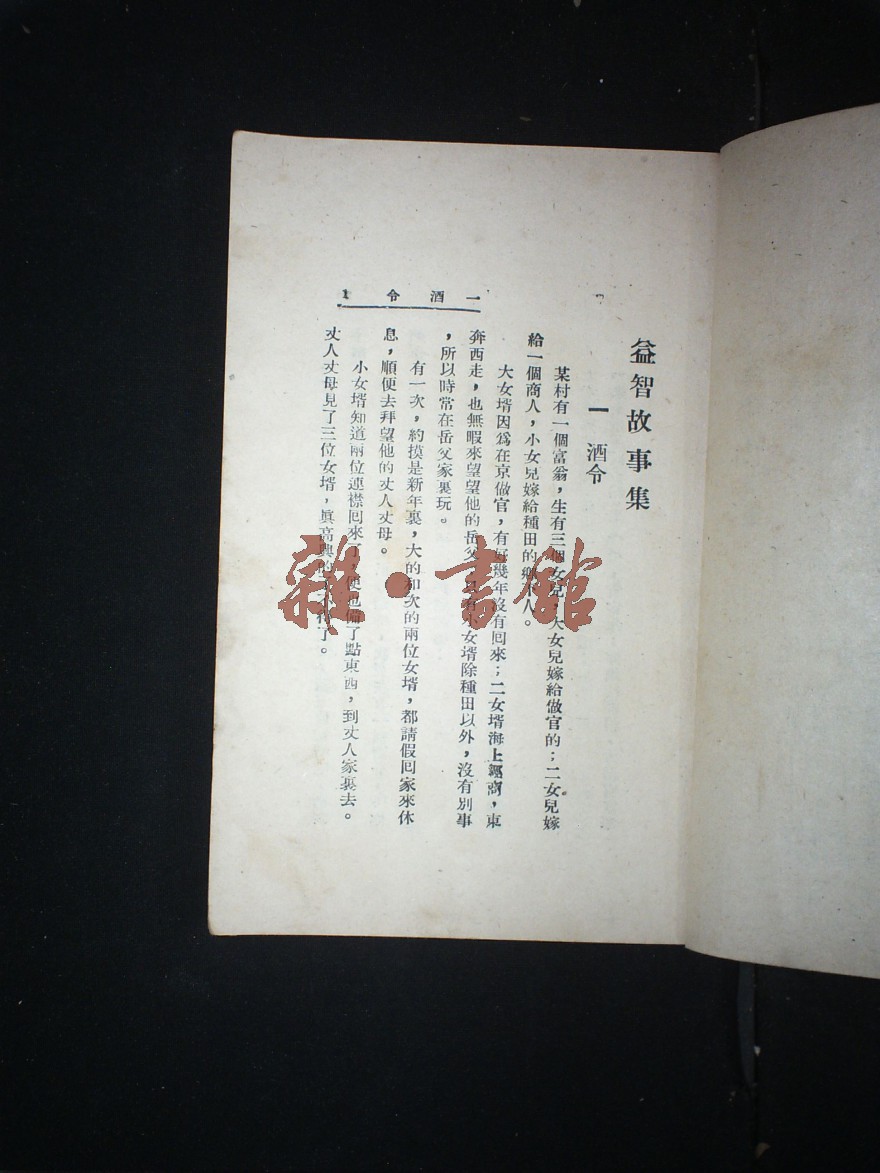 益智故事集
一 酒令
某村有一個富翁，生有三個女兒，大女兒嫁給做官的；二女兒嫁
給一個商人，小女兒嫁給種田的鄉下人。
大女壻因爲在京做官，有好幾年沒有回來；二女壻海上經商，東
奔西走，也無暇來望望他的岳父，只有小女壻除種田以外，沒有別事
，所以時常在岳父家裏玩。
有一次，約摸是新年裏，大的和次的兩位女壻，都請假回家來休
息，順便去拜望他的丈人丈母。
小女壻知道兩位連襟回來了，便也備了點東西，到丈人家裏去。
丈人丈母見了三位女壻，眞高興的了。
一 酒 令 1
雜·書館